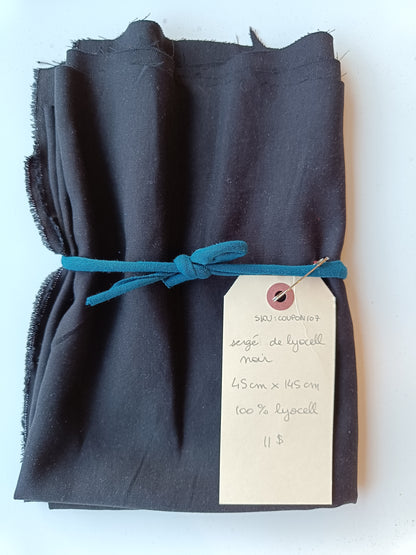 SKU: COUPON107
sergé de lyocell
noir
45cm x 145cm
100% lyocell
11 $